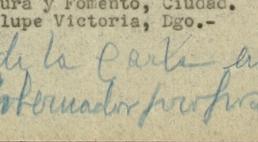 ura y Fomento, Ciudad.
lupe Victoria, Dgo.-
de la Carta en
obernador porfor